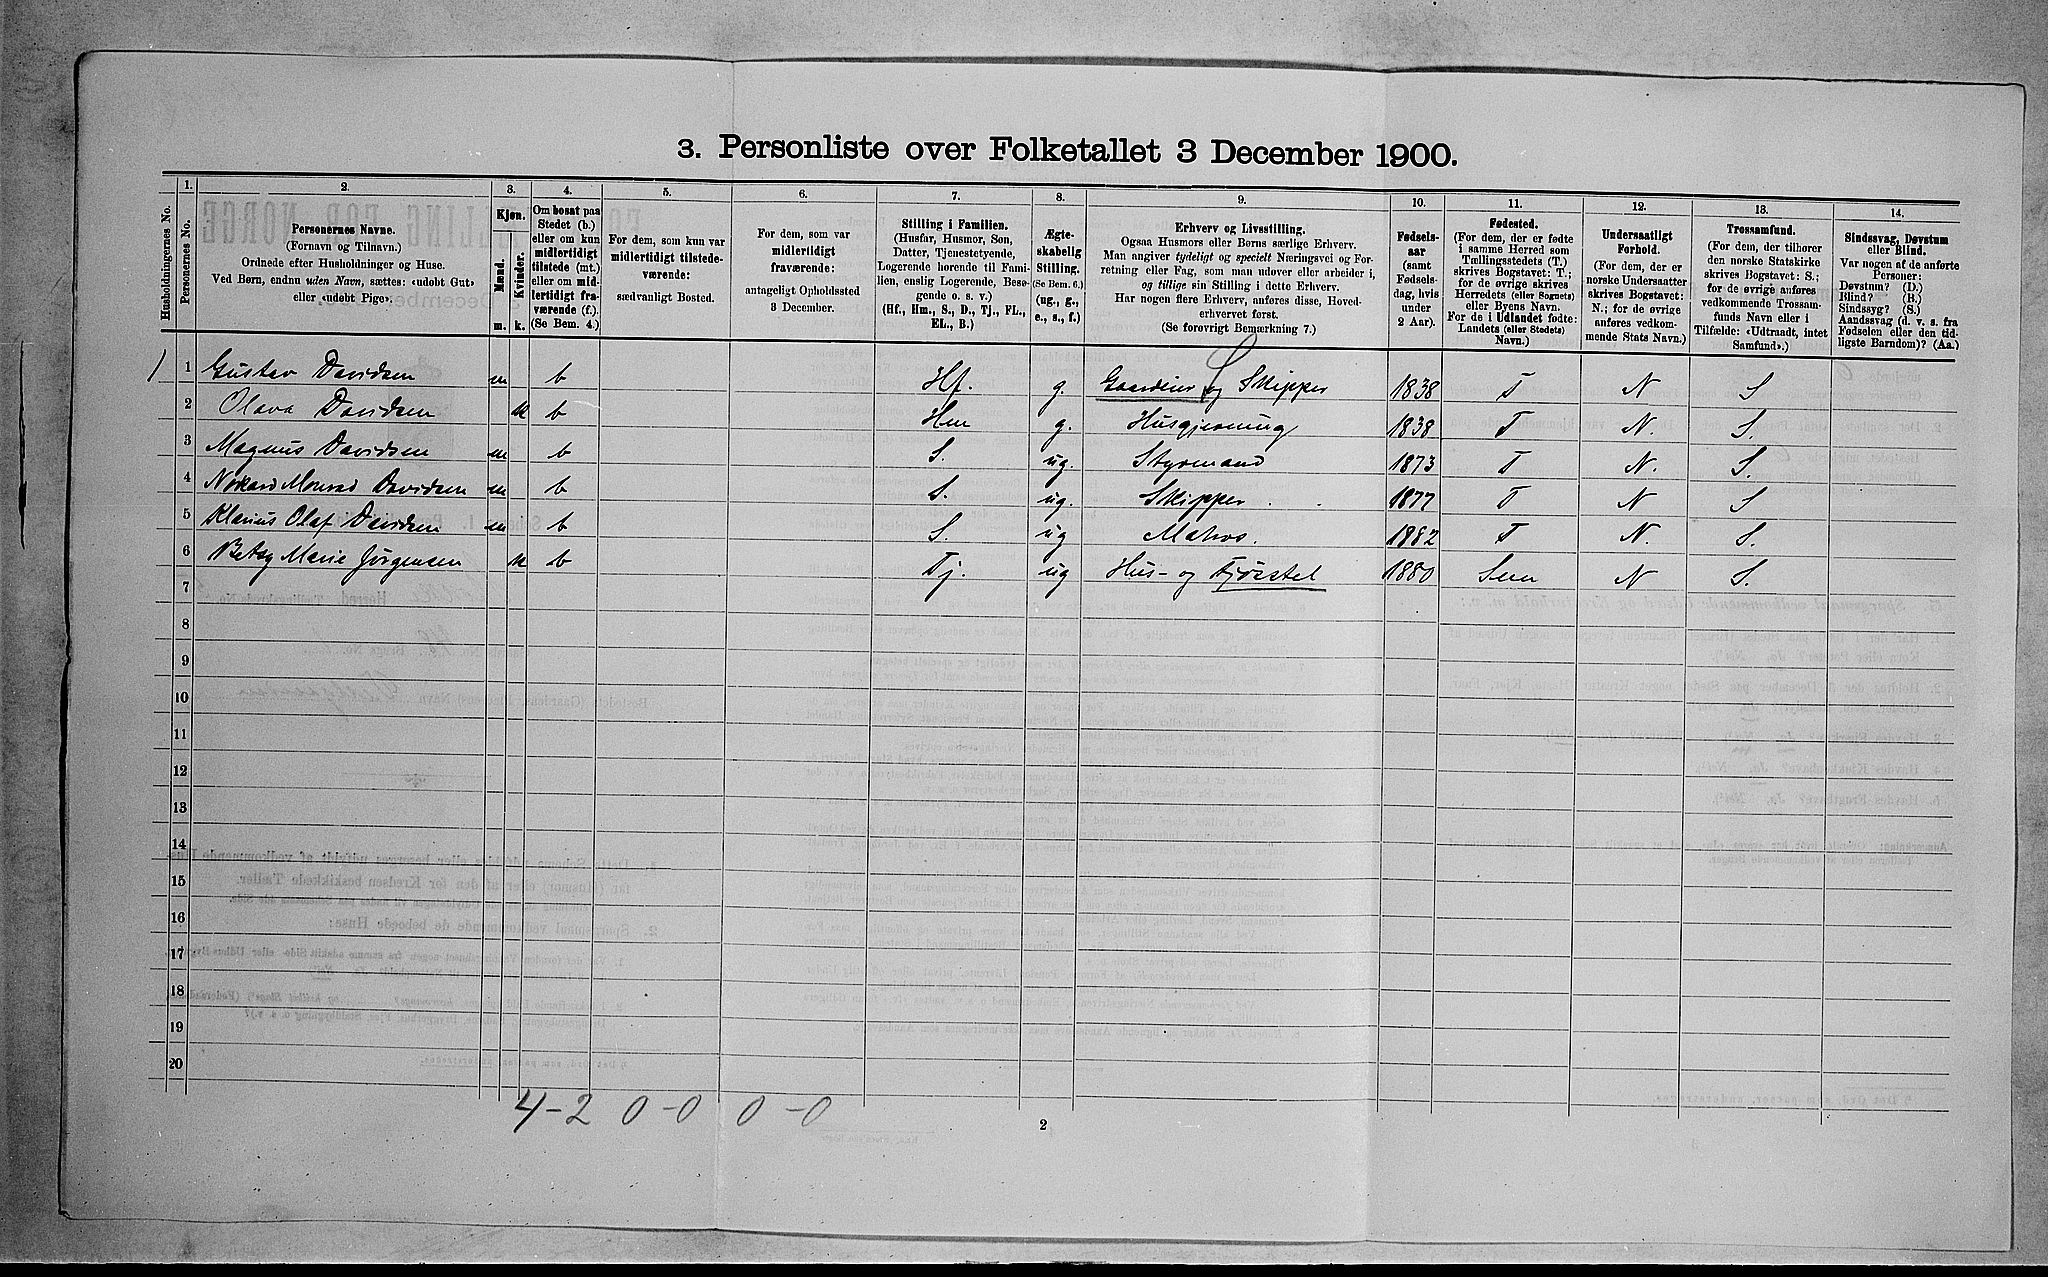 3. Personliste over Folketallet 3 December 1900.
Husholdningernes No.
1.
Personernes No.
2.
Personernes Navne.
(Fornavn og Tilnavn.)
Ordnede efter Husholdninger og Huse.
Ved Børn, endnu uden Navn, sættes: «udobt Gut»
eller «udobt Pige».
3.
Kjøn.
Mænd.
Kvinder.
m. k.
4.
Om bosat paa
Stedet (b.)
eller om kun
midlertidigt
tilstede (mt.)
eller om mid-
lertidigt fra-
værende (f.).
(Se Bem. 4.)
5.
For dem, som kun var
midlertidigt tilstede-
værende:
sædvanligt Bosted.
6.
For dem, som var
midlertidigt
fraværende:
antageligt Opholdssted
3 December.
7.
Stilling i Familien.
(Husfar, Husmor, Søn,
Datter, Tjenestetyende,
Logerende hørende til Fami-
lien, enslig Logerende, Besø-
gende o. s. v.)
(Hf., Hm., S., D., Tj., FL.,
EL., B.)
8.
Ægte-
skabelig
Stilling.
(Se Bem. 6.)
(ug., g.,
e., s., f.)
9.
Erhverv og Livsstilling.
Ogsaa Husmors eller Børns særlige Erhverv.
Man angiver tydeligt og specielt Næringsvei og For-
retning eller Fag, som man udøver eller arbeider i,
og tillige sin Stilling i dette Erhverv.
Har nogen flere Erhverv, anføres disse, Hoved-
erhvervet først.
(Se forøvrigt Bemærkning 7.)
10.
Fødsels-
aar
(samt
Fødsels-
dag, hvis
under
2 Aar).
11.
Fødested.
(For dem, der er fødte
i samme Herred som
Tællingsstedets (T.)
skrives Bogstavet: T.;
for de øvrige skrives
Herredets (eller Sognets)
eller Byens Navn.
For de i Udlandet fødte:
Landets (eller Stedets)
Navn.)
12.
Undersaatligt
Forhold.
(For dem, der er
norske Undersaatter
skrives Bogstavet:
N.; for de øvrige
anføres vedkom-
mende Stats Navn.)
13.
Trossamfund.
(For dem, der tilhører
den norske Statskirke
skrives Bogstavet: S.;
for de øvrige anføres
vedkommende Trossam-
funds Navn eller i
Tilfælde: «Udtraadt, intet
Samfund».)
14.
Sindssvag, Døvstum
eller Blind.
Var nogen af de anførte
Personer:
Døvstum? (D.)
Blind? (B.)
Sindssyg? (S.)
Aandssvag (d. v. s. fra
Fødselen eller den tid-
ligste Barndom)? (Aa.)
1) 1 Gustav Davidsen m b Hf. g. Gaardeier og Skipper 1838 T N S
2 Olava Davidsen k b Hm g. Husgjerning 1838 T N. S.
3 Magnus Davidsen m b S. ug. Styrmand 1873 T N. S.
4 Davidsen m b S. ug. Skipper 1877 T N S
5 Klarius Olaf Davidsen m b S. ug Matros. 1882 T N. S.
6 Betsy Marie Jørgensen k b Tj. ug Hus- og 1880 Sem N S.
7
8
9
10
11
12
13
14
15
16
17
18
19
20
4-2 0-0 0-0
2